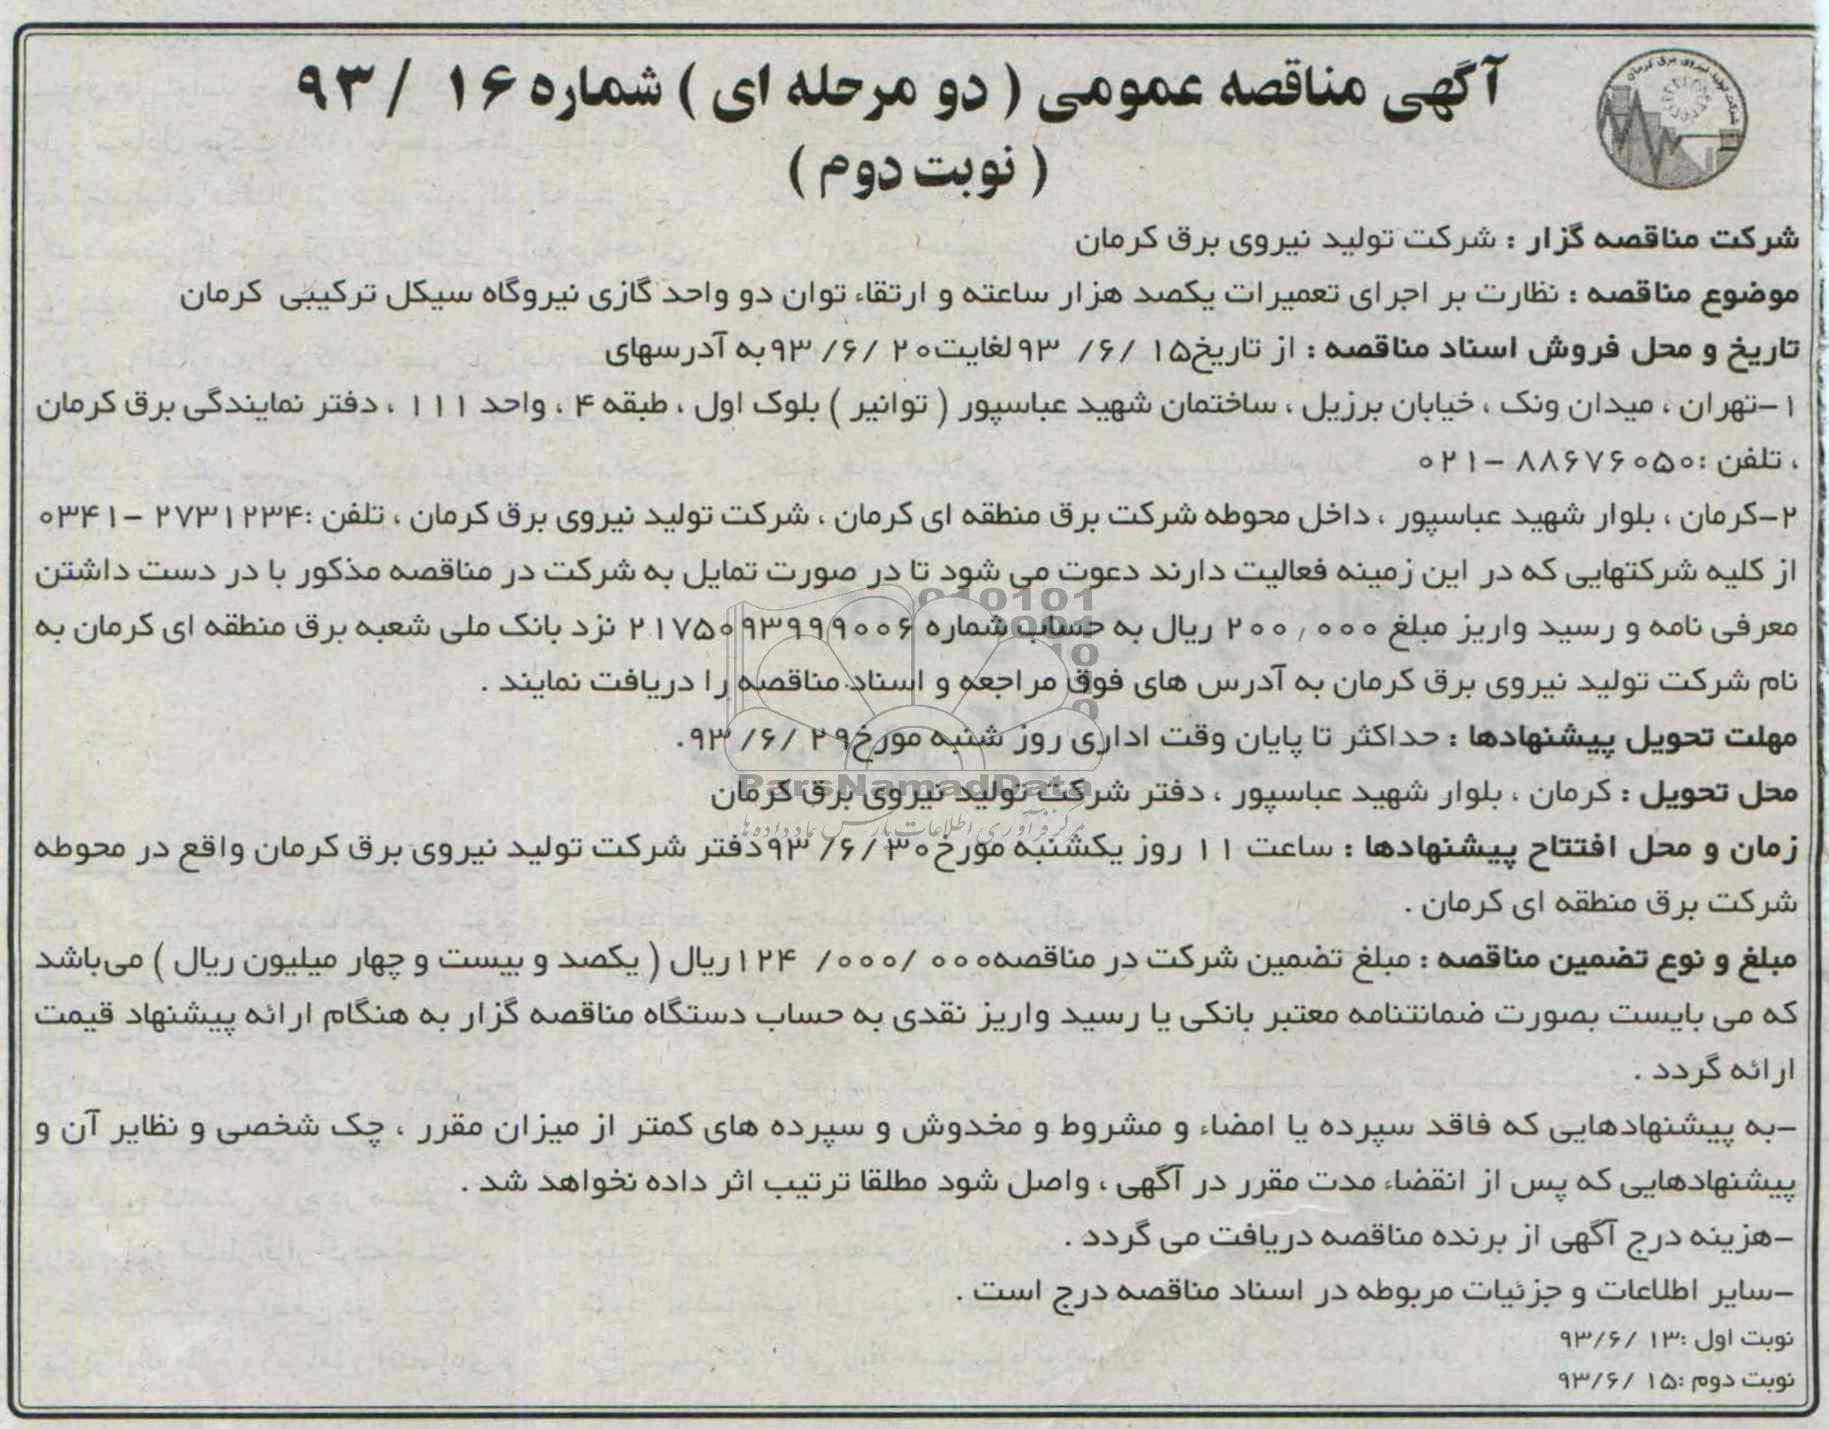 شرکت تولید نیروی برق کرمان
آگهی مناقصه عمومی ( دو مرحله ای ) شماره ۱۶ / ۹۳
( نوبت دوم )
شرکت مناقصه گزار : شرکت تولید نیروی برق کرمان
موضوع مناقصه : نظارت بر اجرای تعمیرات یکصد هزار ساعته و ارتقاء توان دو واحد گازی نیروگاه سیکل ترکیبی کرمان
تاریخ و محل فروش اسناد مناقصه : از تاریخ۱۵ /۶/ ۹۳لغایت۲۰ /۶/ ۹۳به آدرسهای
۱-تهران ، میدان ونک ، خیابان برزیل ، ساختمان شهید عباسپور ( توانیر ) بلوک اول ، طبقه ۴ ، واحد ۱۱۱ ، دفتر نمایندگی برق کرمان
، تلفن :۸۸۶۷۶۰۵۰ -۰۲۱
۲-کرمان ، بلوار شهید عباسپور ، داخل محوطه شرکت برق منطقه ای کرمان ، شرکت تولید نیروی برق کرمان ، تلفن :۲۷۳۱۲۳۴ -۰۳۴۱
از کلیه شرکتهایی که در این زمینه فعالیت دارند دعوت می شود تا در صورت تمایل به شرکت در مناقصه مذکور با در دست داشتن
معرفی نامه و رسید واریز مبلغ ۲۰۰,۰۰۰ ریال به حساب شماره ۲۱۷۵۰۹۳۹۹۹۰۰۶ نزد بانک ملی شعبه برق منطقه ای کرمان به
نام شرکت تولید نیروی برق کرمان به آدرس های فوق مراجعه و اسناد مناقصه را دریافت نمایند .
مهلت تحویل پیشنهادها : حداکثر تا پایان وقت اداری روز شنبه مورخ۲۹ /۶/ ۹۳.
ParsNamadData
محل تحویل : کرمان ، بلوار شهید عباسپور ، دفتر شرکت تولید نیروی برق کرمان
مرکز فرآوری اطلاعات پارس نماد داده ها
زمان و محل افتتاح پیشنهادها : ساعت ۱۱ روز یکشنبه مورخ۳۰ /۶/ ۹۳دفتر شرکت تولید نیروی برق کرمان واقع در محوطه
شرکت برق منطقه ای کرمان .
مبلغ و نوع تضمین مناقصه : مبلغ تضمین شرکت در مناقصه۰۰۰ /۰۰۰/ ۱۲۴ریال ( یکصد و بیست و چهار میلیون ریال ) می‌باشد
که می بایست بصورت ضمانتنامه معتبر بانکی یا رسید واریز نقدی به حساب دستگاه مناقصه گزار به هنگام ارائه پیشنهاد قیمت
ارائه گردد .
-به پیشنهادهایی که فاقد سپرده یا امضاء و مشروط و مخدوش و سپرده های کمتر از میزان مقرر ، چک شخصی و نظایر آن و
پیشنهادهایی که پس از انقضاء مدت مقرر در آگهی ، واصل شود مطلقا ترتیب اثر داده نخواهد شد .
-هزینه درج آگهی از برنده مناقصه دریافت می گردد .
-سایر اطلاعات و جزئیات مربوطه در اسناد مناقصه درج است .
نوبت اول :۱۳ /۹۳/۶
نوبت دوم :۱۵ /۹۳/۶